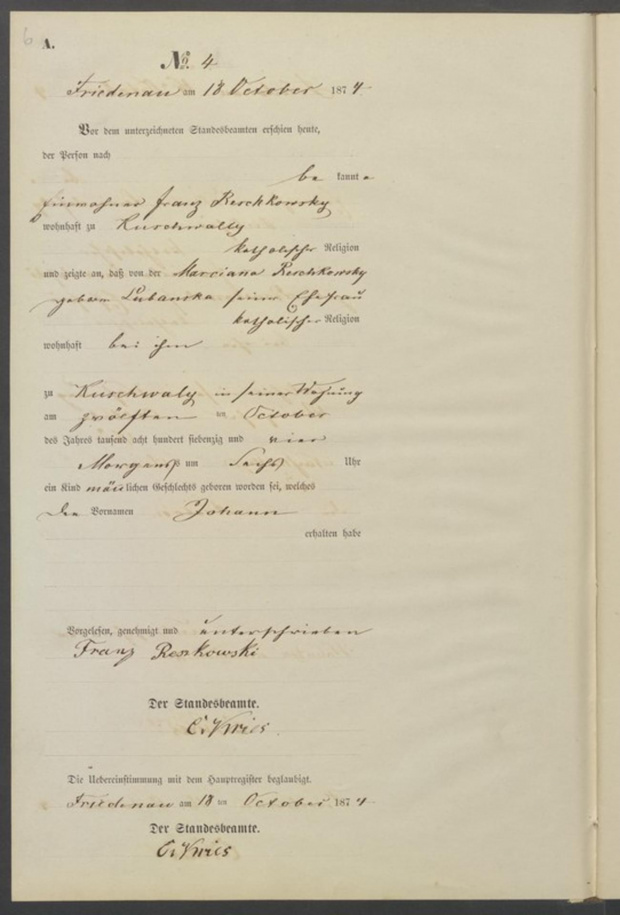 6
A.
No. 4
Friedenau am 18 October 1874
Vor dem unterzeichneten Standesbeamten erschien heute,
der Person nach
be kannte
Einwohner Franz Reschkowsky
wohnhaft zu Kuschwally
katholischer Religion
und zeigte an, daß von der Marciana Reschkowsky
geboren Lubanska seiner Ehefrau
katholischer Religion
wohnhaft bei ihm
zu Kuschwaly in seiner Wohnung
am zwölften ten October
des Jahres tausend acht hundert siebenzig und vier
Morgens um Sechs Uhr
ein Kind männlichen Geschlechts geboren worden sei, welches
den Vornamen Johann
erhalten habe
Vorgelesen, genehmigt und unterschrieben
Franz Reszkowski
Der Standesbeamte.
Die Uebereinstimmung mit dem Hauptregister beglaubigt.
Friedenau am 18 ten October 1874
Der Standesbeamte.